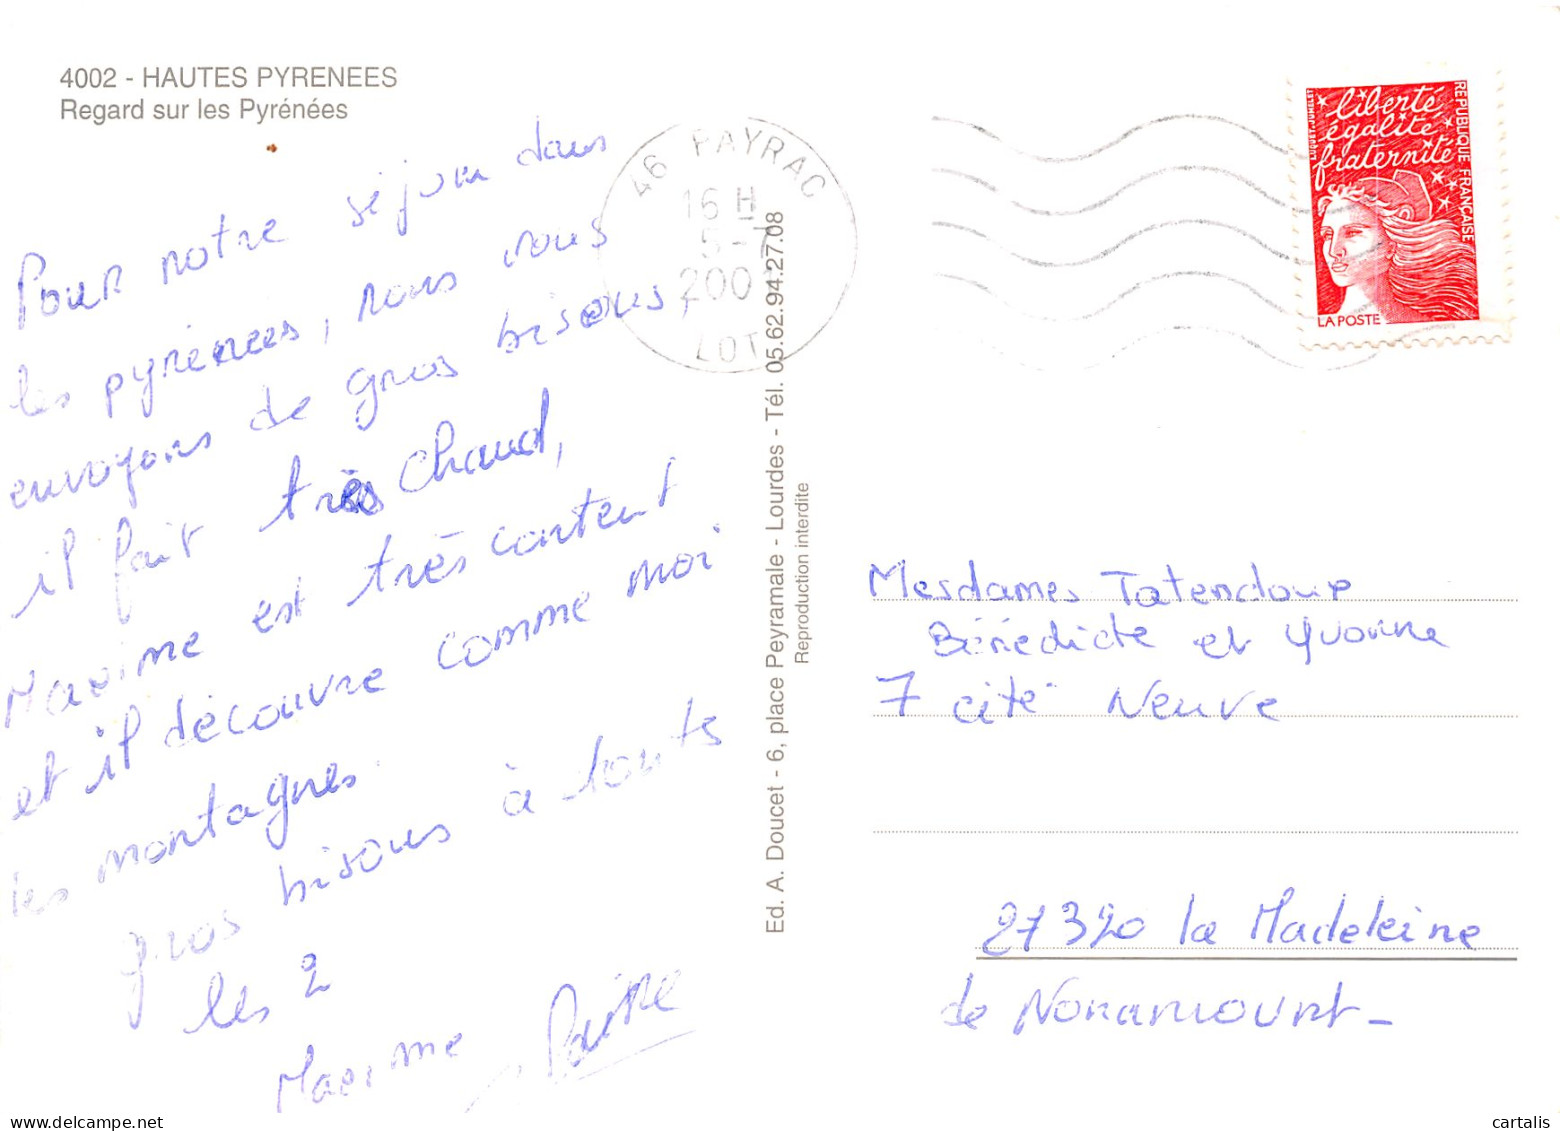 4002 - HAUTES PYRENEES
Regard sur les Pyrénées
Pour notre séjour dans
les pyrénées, nous vous
envoyons de gros bisous,
il fait très chaud,
Maxime est très content
et il découvre comme moi
les montagnes.
gros bisous à touts
les 2
Maxime
46 PAYRAC
16 H
5-7
200
LOT
Ed. A. Doucet - 6, place Peyramale - Lourdes - Tél. 05.62.94.27.08
Reproduction interdite
liberté
égalité
fraternité
REPUBLIQUE FRANÇAISE
LA POSTE
Mesdames Tatencloup
Bénédicte et Yvonne
7 cité Neuve
27320 la Madeleine
de Nonancourt-
delcampe.net
cartalis